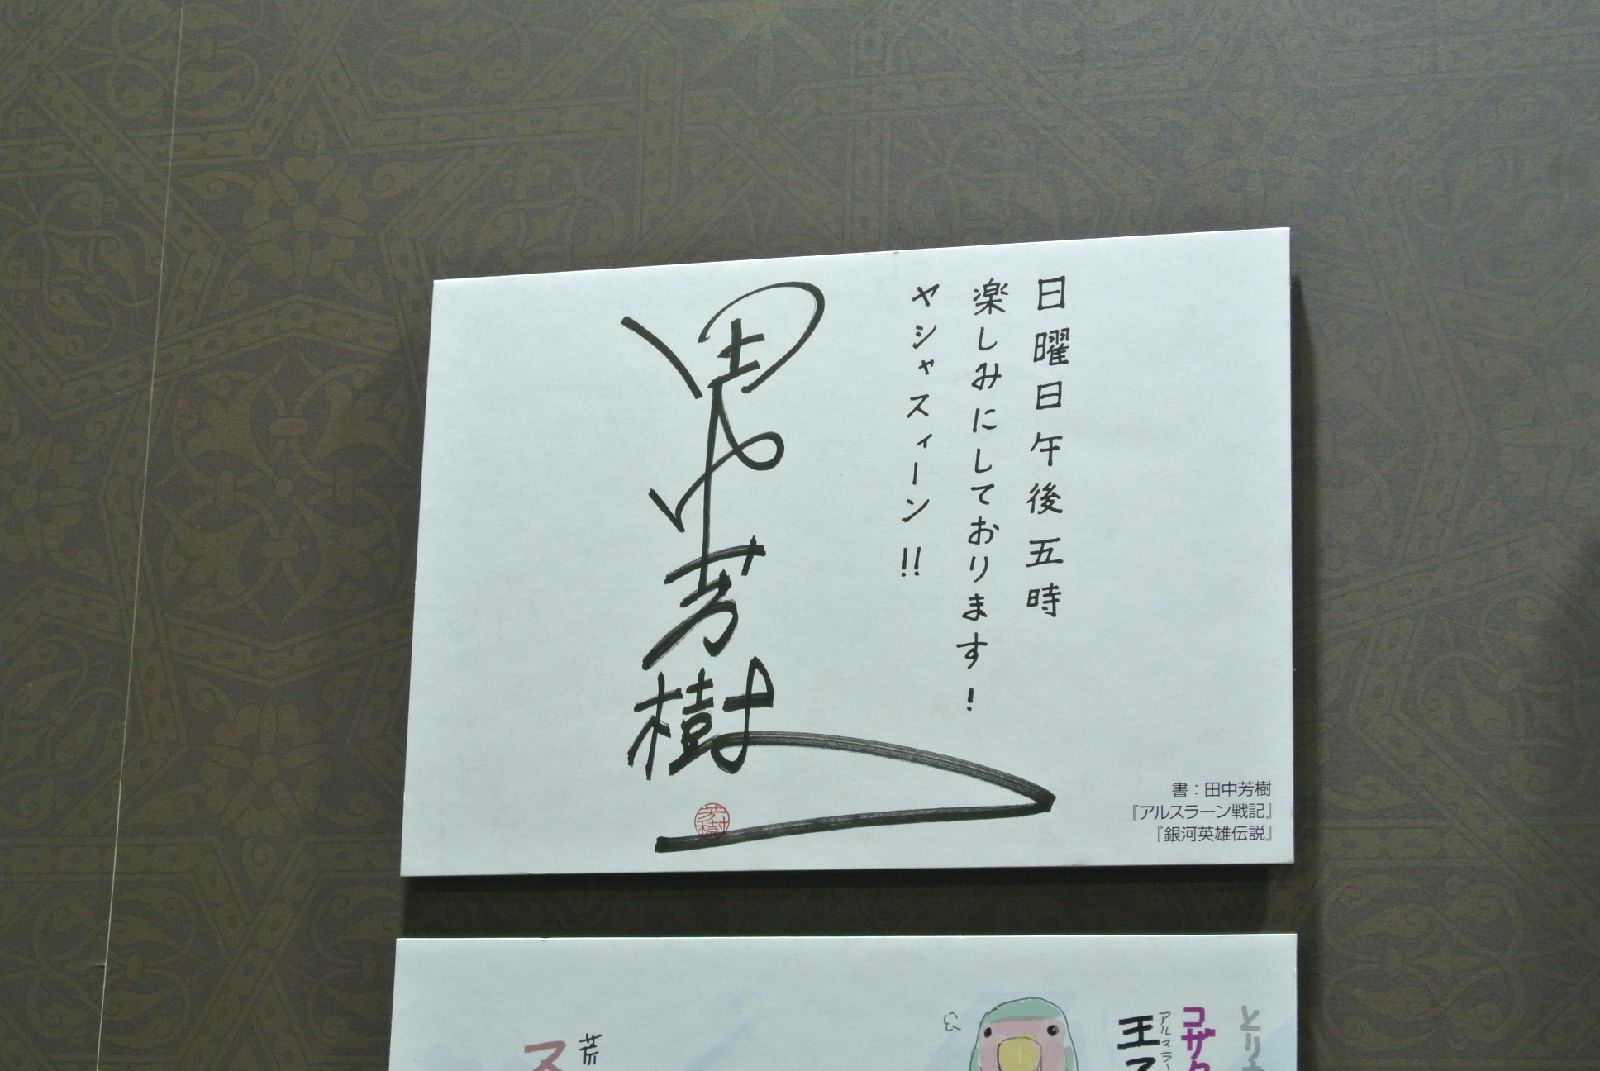 日曜日午後五時
楽しみにしております!
ヤシャスィーン!!
田中芳樹
芳樹
書:田中芳樹
『アルスラーン戦記』
『銀河英雄伝説』
とり
コザ
アルスラー
王
荒